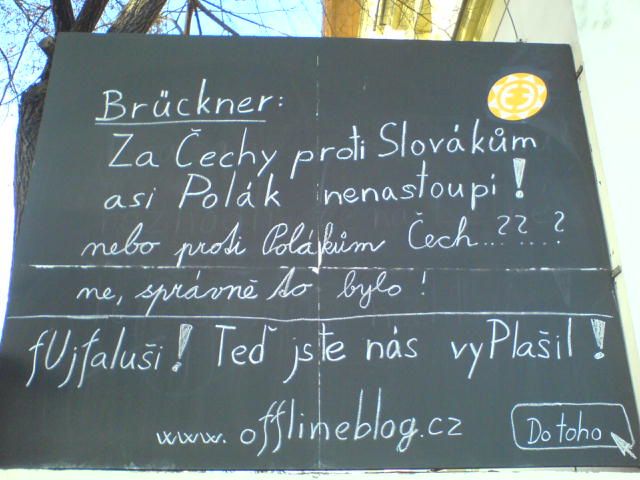 Brückner:
Za Čechy proti Slovákům
asi Polák nenastoupí!
nebo proti Polákům Čech...??...?
ne, správně to bylo!
fUjfaluši! Teď jste nás vyPlašil!
www.offlineblog.cz
Do toho